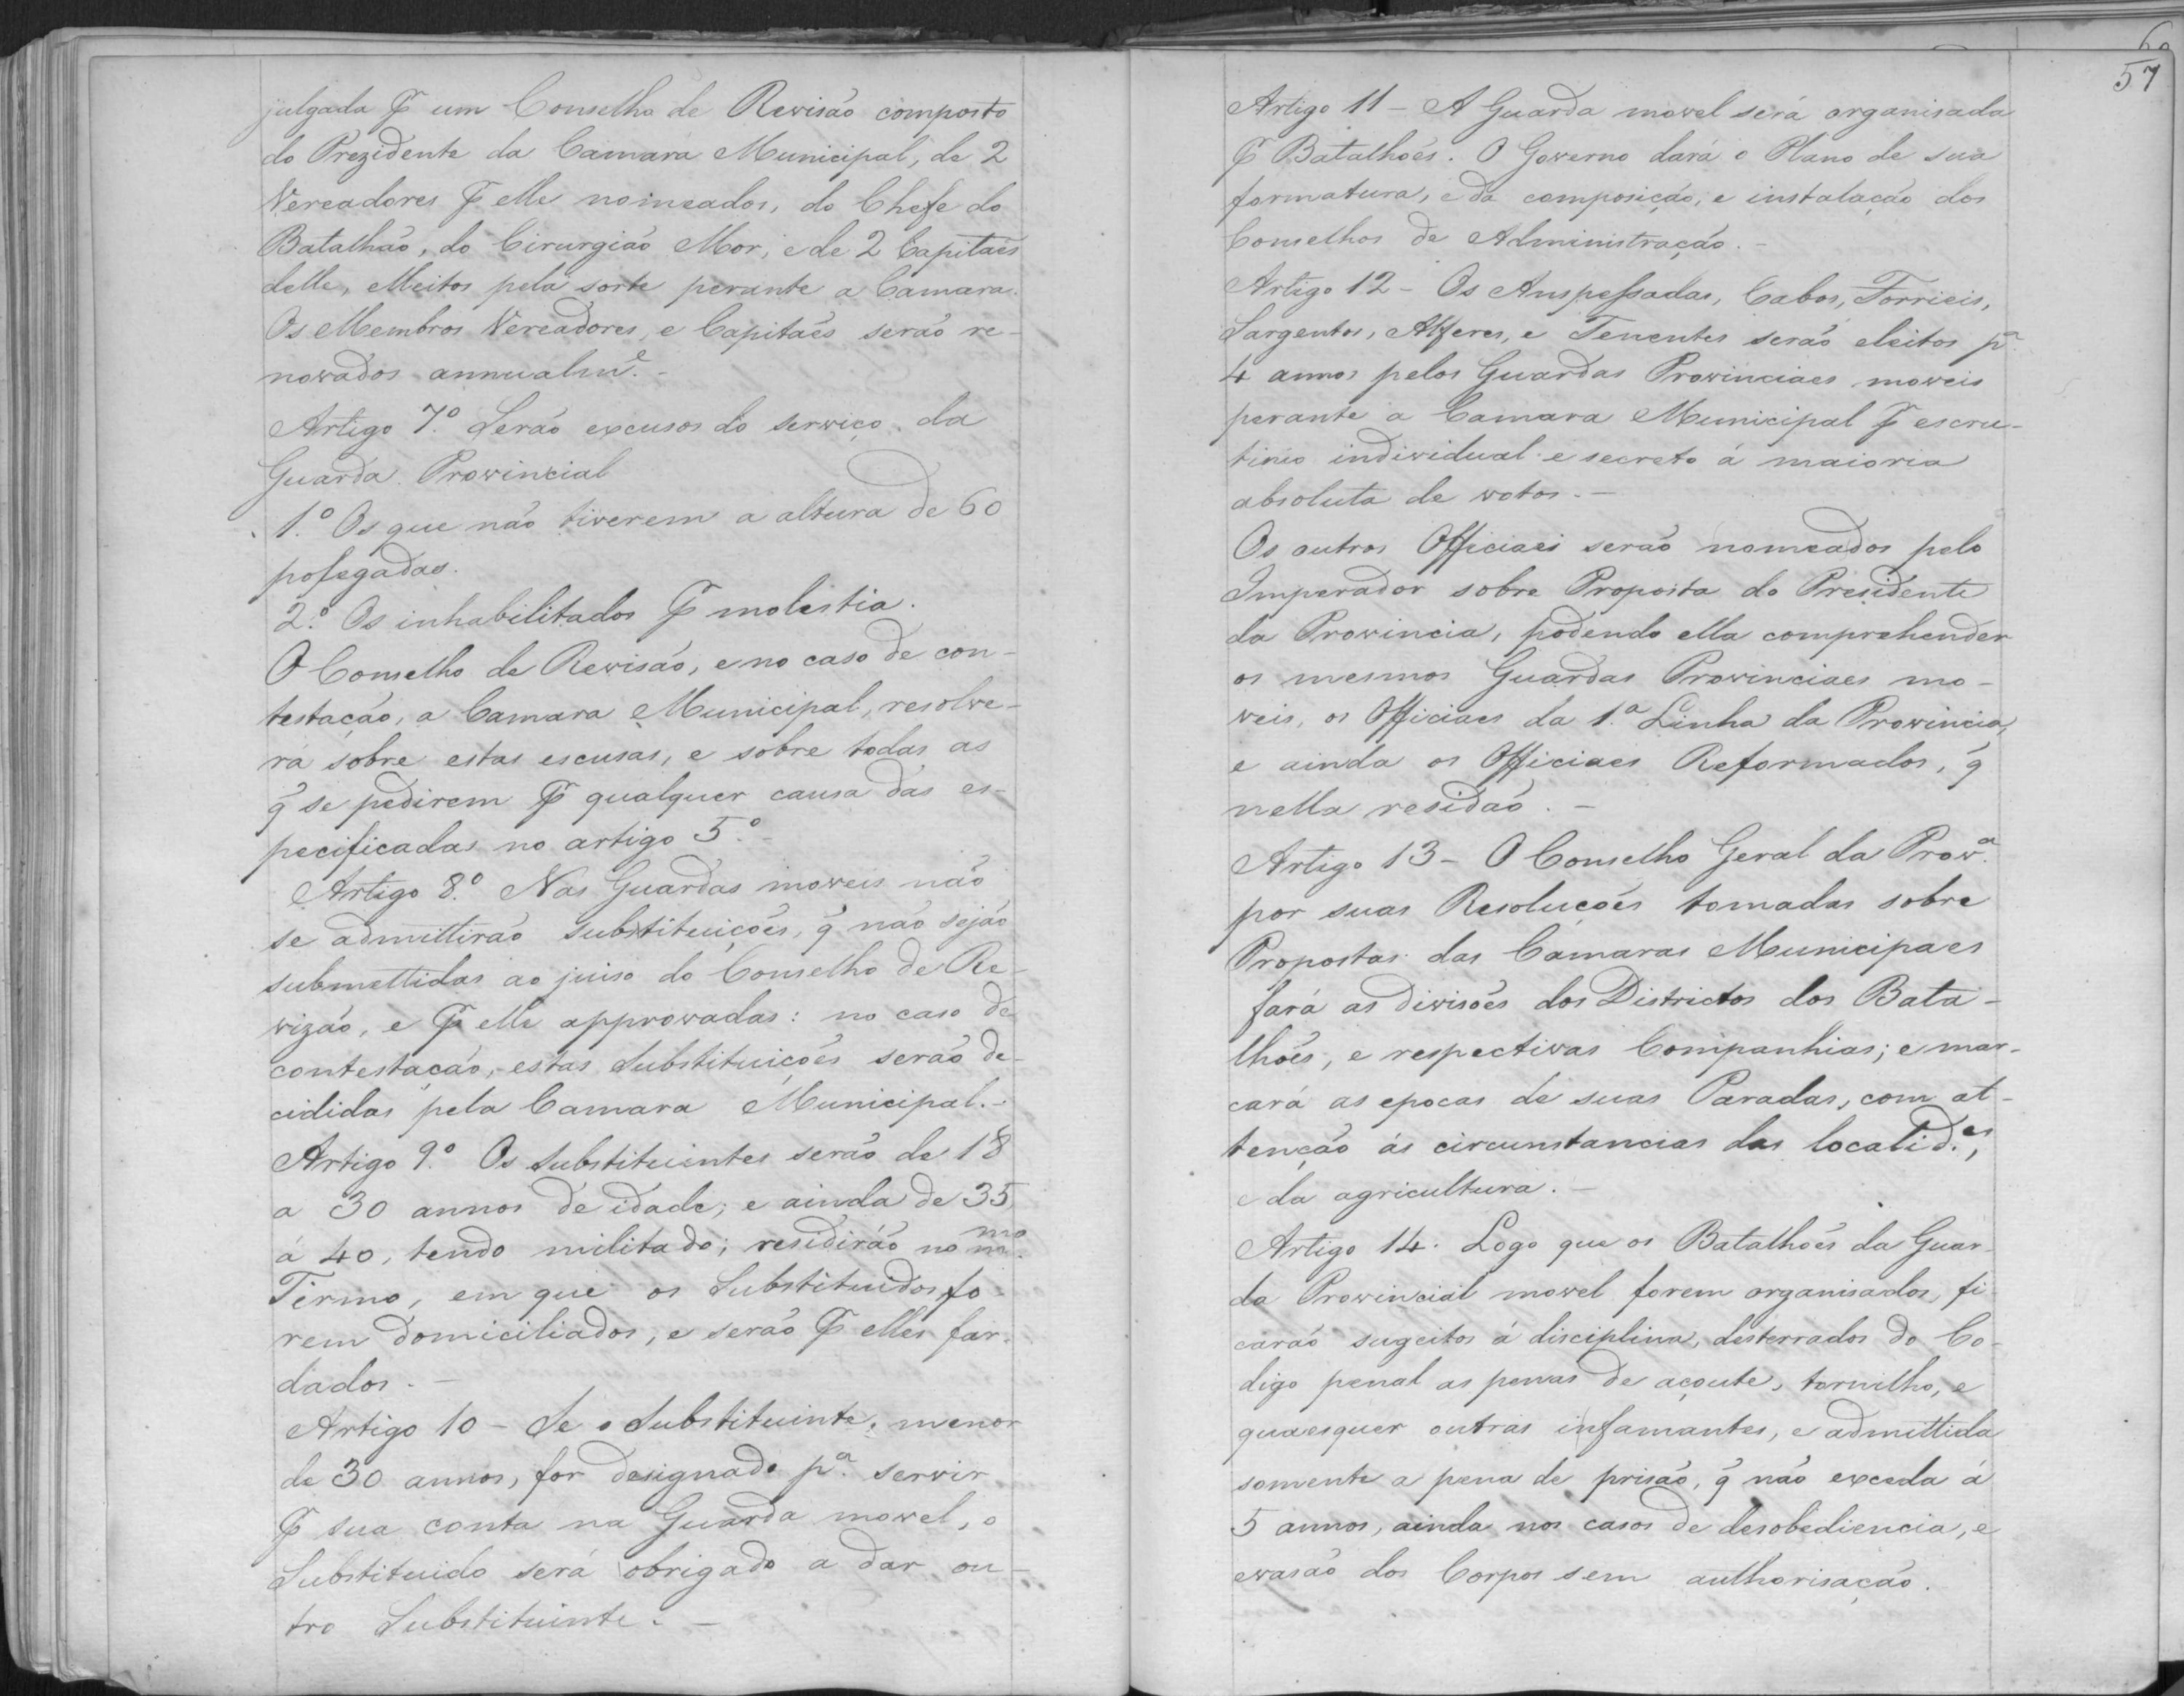 julgada p um Conselho de Revisão composto
do Prezidente da Camara Municipal, de 2
Vereadores p elle nomeados, do Chefe do
Batalhão, do Cirurgião Mor, e de 2 Capitães
delle, elleitos pela sorte perante a Camara.
Os Membros Vereadores, e Capitães serão re-
novados annualme. -
Artigo 7.º Serão excusos do serviço da
Guarda Provincial
1.º Os que não tiverem a altura de 60
polegadas.
2.º Os inhabilitados p molestia.
O Conselho de Revisão, e no caso de con-
testação, a Camara Municipal, resolve-
rá sobre estas escusas, e sobre todas as
q̃ se pedirem p qualquer causa das es-
pecificadas no artigo 5.º -
Artigo 8.º Nas Guardas moveis não
se admittirão substituições, q̃ não sejão
submettidas ao juiso do Conselho de Re-
vizão, e p elle approvadas: no caso de
contestação, estas Substituições serão de-
cididas pela Camara Municipal. -
Artigo 9.º Os Substituintes serão de 18
a 30 annos de idade; e ainda de 35,
á 40, tendo militado; residirão no mmo
Termo, em que os Substituidos fo-
rem domiciliados, e serão p elles far-
dados. -
Artigo 10 - Se o Substituinte, menor
de 30 annos, for designado p.ª servir
p sua conta na Guarda movel, o
Substituido será obrigado a dar ou-
tro Substituinte. -
60
57
Artigo 11 - A Guarda movel será organisada
p Batalhões. O Governo dará o Plano de sua
formatura, e da composição, e instalação dos
Conselhos de Administração. -
Artigo 12 - Os Anspessadas, Cabos, Forrieis,
Sargentos, Alferes, e Tenentes serão eleitos p.ª
4 annos pelos Guardas Provinciaes moveis
perante a Camara Municipal p escru-
tinio individual e secreto á maioria
absoluta de votos. -
Os outros Officiaes serão nomeados pelo
Imperador sobre Proposta do Presidente
da Provincia, podendo ella comprehender
os mesmos Guardas Provinciaes mo-
veis, os Officiaes da 1.ª Linha da Provincia,
e ainda os Officiaes Reformados, q̃
nella residão. -
Artigo 13 - O Conselho Geral da Prov.ª
por suas Resoluções tomadas sobre
Propostas das Camaras Municipaes
fará as divisões dos Districtos dos Bata-
lhões, e respectivas Companhias; e mar-
cará as epocas de suas Paradas, com at-
tenção ás circunstancias das localid.es,
e da agricultura. -
Artigo 14. Logo que os Batalhões da Guar-
da Provincial movel forem organisados, fi-
carão sugeitos á disciplina, desterrados do Co-
digo penal as penas de açoute, tornilho, e
quaesquer outras infamantes, e admittida
somente a pena de prisão, q̃ não exceda á
5 annos, ainda nos casos de desobediencia, e
evasão dos Corpos sem authorisação.